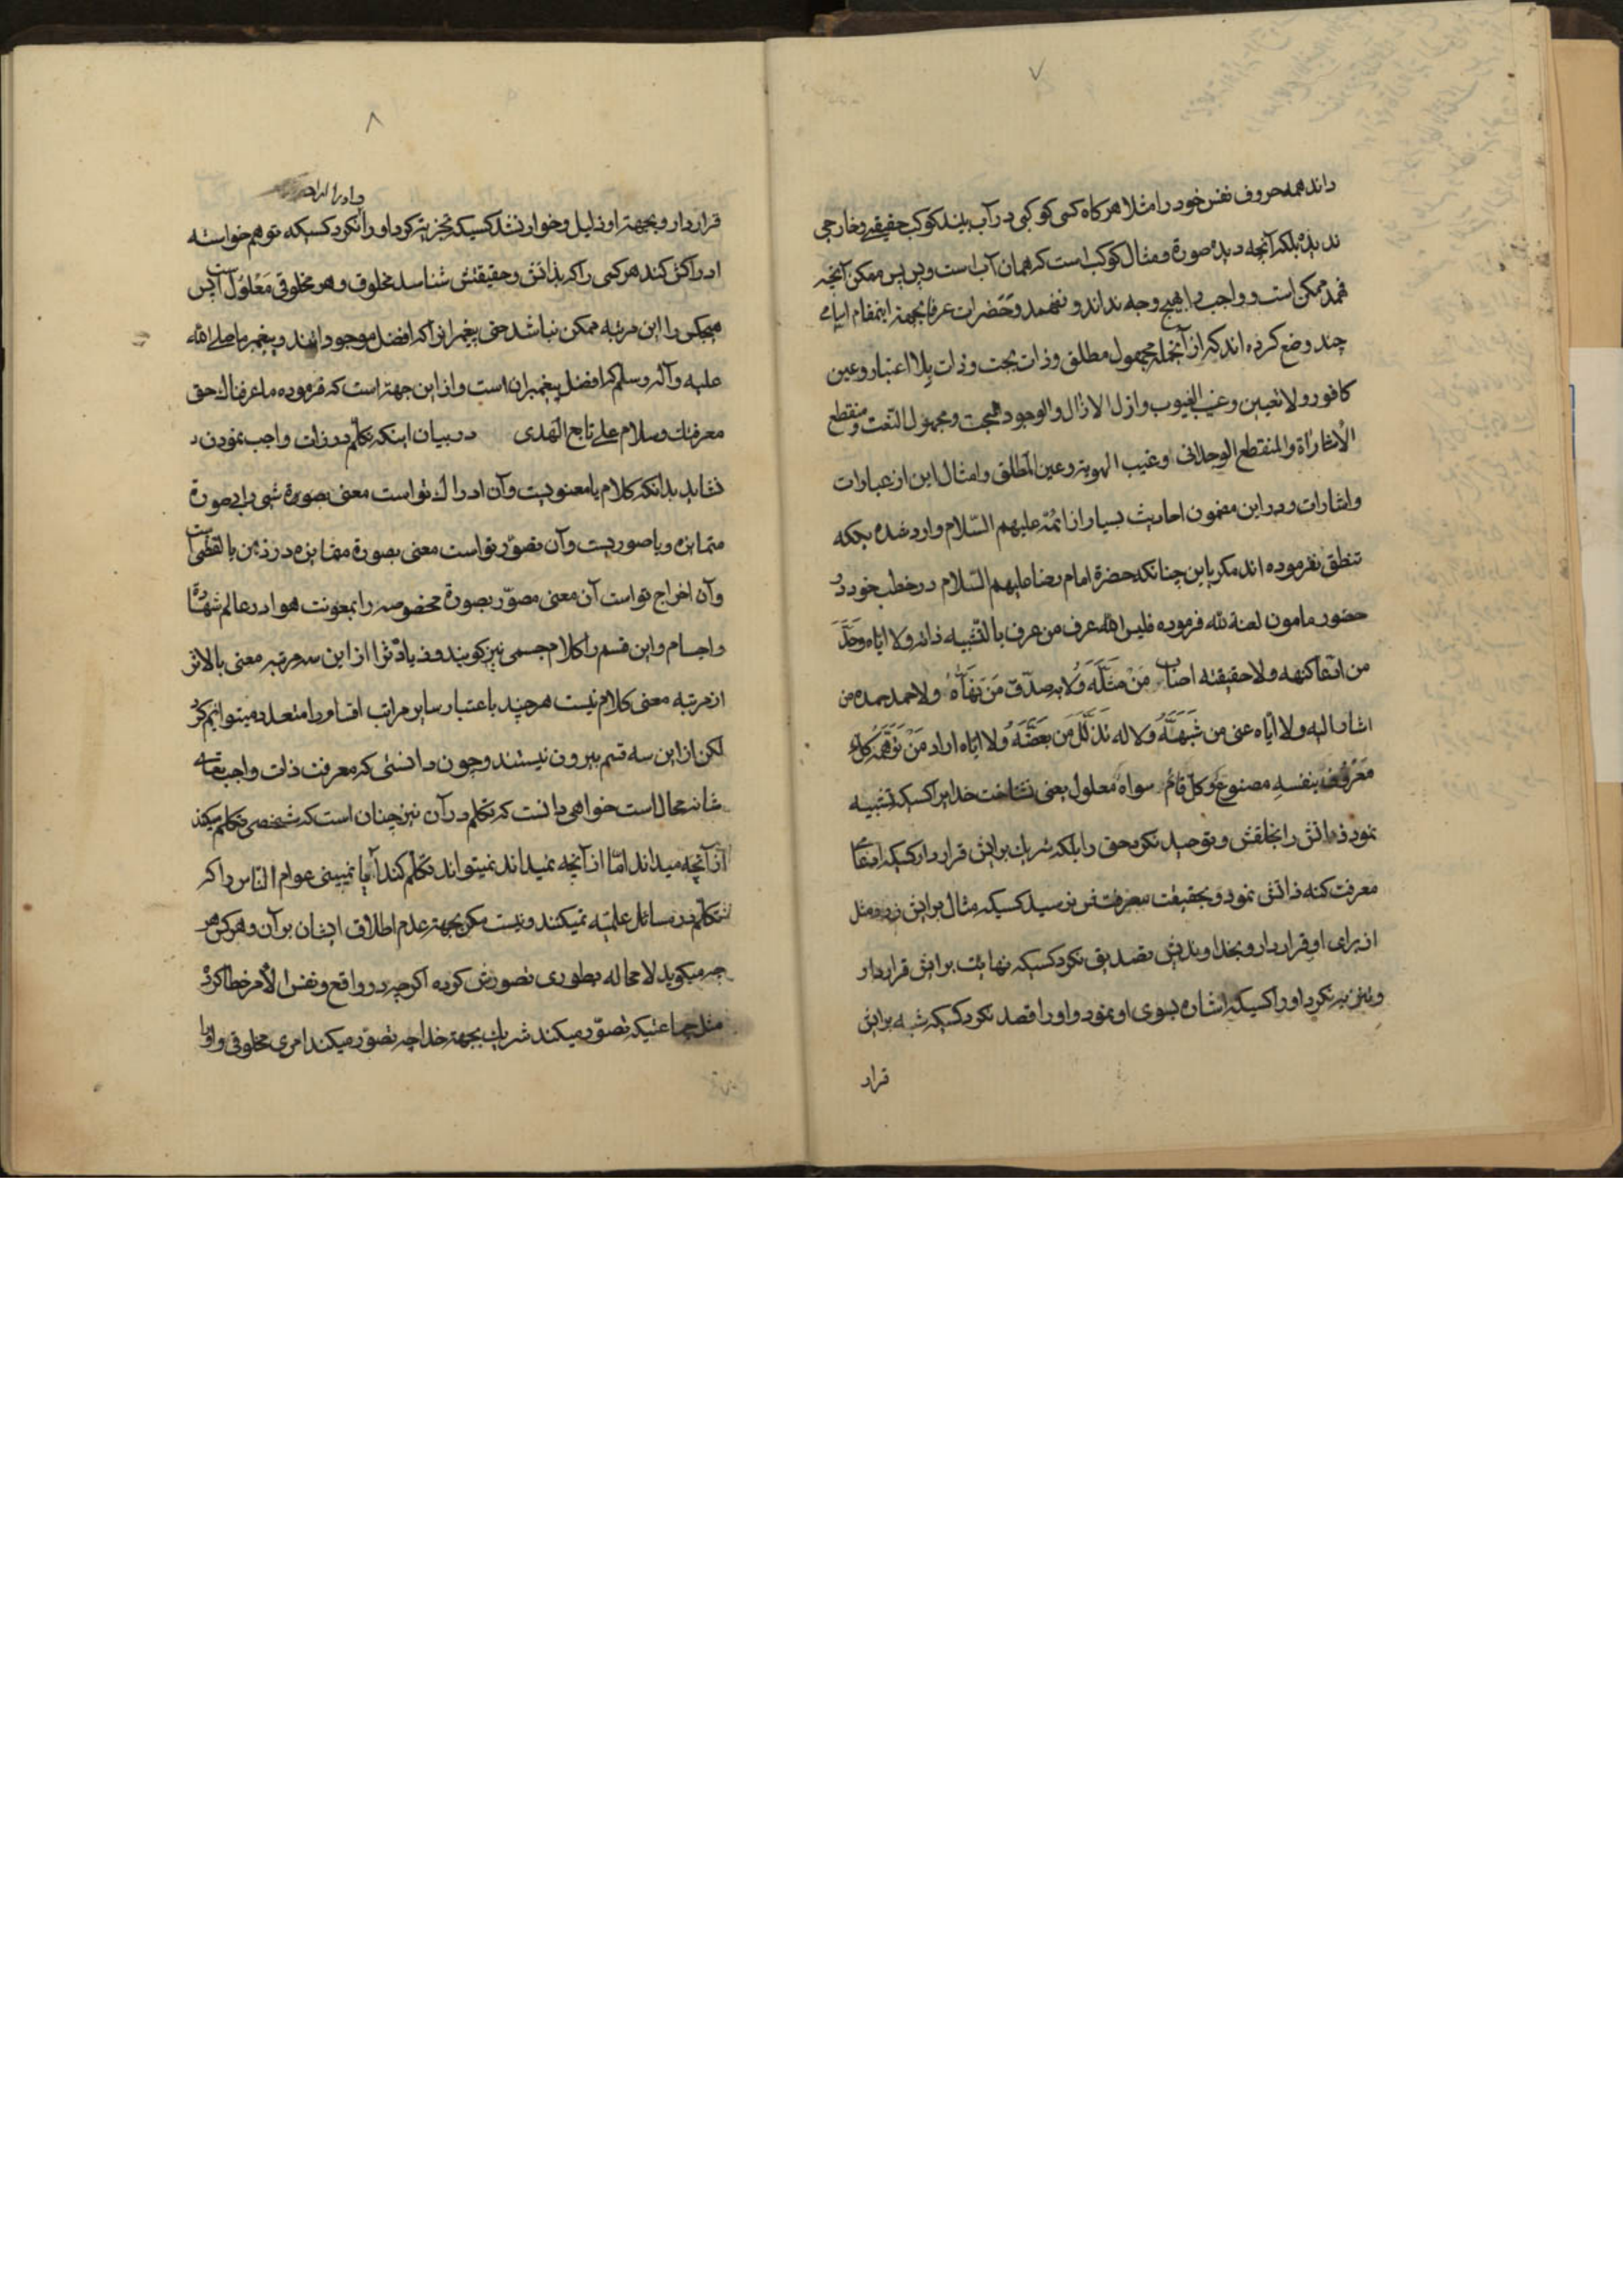 ۷
داند همه حروف نفس خود را مثلا هر کاه کسی کوکبی در آب بیند کوکب حقیقی و خارجی
ندیده بلکه آنچه دیده صورة و مثال کوکب است که همان آب است و بس پس ممکن آنچه
فهمد ممکن است و واجب را بهیچ وجه نداند و نفهمد و حضرات عرفا بجهة اینمقام اسامی
چند وضع کرده اند که از آنجمله مجهول مطلق و ذات بحت و ذات بلا اعتبار و عین
کافور و لا تعین و غیب الغیوب و ازل الازال و الوجود البحت و مجهول النعت و منقطع
الاشارات و المنقطع الوجدانی و غیب الهویة و عین المطلق و امثال این از عبارات
و اشارات و در این مضمون احادیث بسیار از ائمّه علیهم السّلام وارد شده بلکه
تنطق نفرموده اند مکر باین چنانکه حضرة امام رضا علیهم السّلام در خطب خود در
حضور مامون لعنة لله فرموده فلیس الله عرف من عرف بالتّشبیه ذاته ولا ایاه وحّد
من اکتنهه ولا حقیقته اصاب مَنْ مَثَّلَهُ وَلا به صدّق مَنْ نَهّاهُ ولا صمد صمده من
اشار الیه ولا ایّاه عنی من شَبَّهَهُ ولا له تذلّل من بَعَّضَهُ ولا ایاه اراد مَنْ تَوَهَّمَهُ کل
مَعْرُوفٍ بنفسهِ مصنوع و کل قائم سواه معلول یعنی نشناخت خدا را کسیکه تشبیه
نمود ذاتش را بخلقش و توحید نکرد حق را بلکه شریک برایش قرار داد کسیکه ادعای
معرفت کنه ذاتش نمود و بحقیقت معرفتش نرسید کسیکه مثال برایش زد و مثل
از برای او قرار داد و بخداوندیش تصدیق نکرد کسیکه نهایت برایش قرار داد
و تنزیه نکرد او را کسیکه اشاره بسوی او نمود و او را قصد نکرد کسیکه شبه برایش
قرار
۸
قرار داد و بجهة او ذلیل و خوار نشد کسیکه تجزیه کرد او را نکرد کسیکه توهم خواسته
ادراکش کند هر کسی را که بذاتش و حقیقتش شناسد مخلوق و هر مخلوقی مَعْلُول است پس
هیچکس را این مرتبه ممکن نباشد حتی پیغمبرانرا که افضل موجوداتند و پیغمبر ما صلی الله
علیه و آله و سلم که افضل پیغمبران است و از این جهة است که فرموده ما عرفناک حق
معرفتک و سلام علی تابع الهدی در بیان اینکه تکلّم در ذات واجب نمودن
نشاید بدانکه کلام یا معنویست و آن ادراک تو است معنی بصورة شی را بصورة
متمایزه و یا صوریست و آن تصوّر تو است معنی بصورة متمایزه در ذهن یا لفظی است
و آن اخراج تو است آن معنی مصوّر بصورة مخصوصه را بمعونت هوا در عالم شهاده
و اجسام و این قسم را کلام جسمی نیز کویند و زیادتر از این سه مرتبه معنی بالاتر
از مرتبه معنی کلام نیست هر چند باعتبار سایر مراتب اقسام را متعدد میتوانیم کرد
لکن از این سه قسم بیرون نیستند و چون دانستی که معرفت ذات واجب تعالی
شانه محال است خواهی دانست که تکلم در آن نیز چنان است که شخصی تکلم میکند
از آنچه میداند امّا از آنچه نمیداند نمیتواند تکلّم کند آیا نمیبینی عوام النّاس را که
تکلّم در مسائل علمیّه نمیکنند و نیست مکر بجهة عدم اطلاق ایشان بر آن و هر کس هر
چه میکوید لا محاله بطوری تصورش کرده اکر چه در واقع و نفس الأمر خطا کرد
مثل جماعتیکه تصوّر میکند شریک بجهة خدا چه تصوّر میکند امری مخلوقی و او را